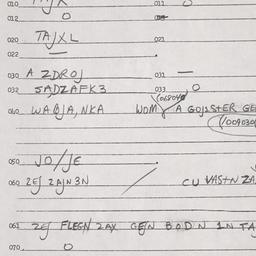 010 TAJX 011 O
012 O
020 TAJXL 021
022 —
030 A ZDROJ 031 —
032 SADZAFK3 033 O
040 WAØJA, NKA WOM A GOJSTER GE
050 JO/JE
060 ZEJ ZAJN3N CU VASTN ZA
061 ZEJ FLEGN ZAX GEJN BODN IN TA
070 O